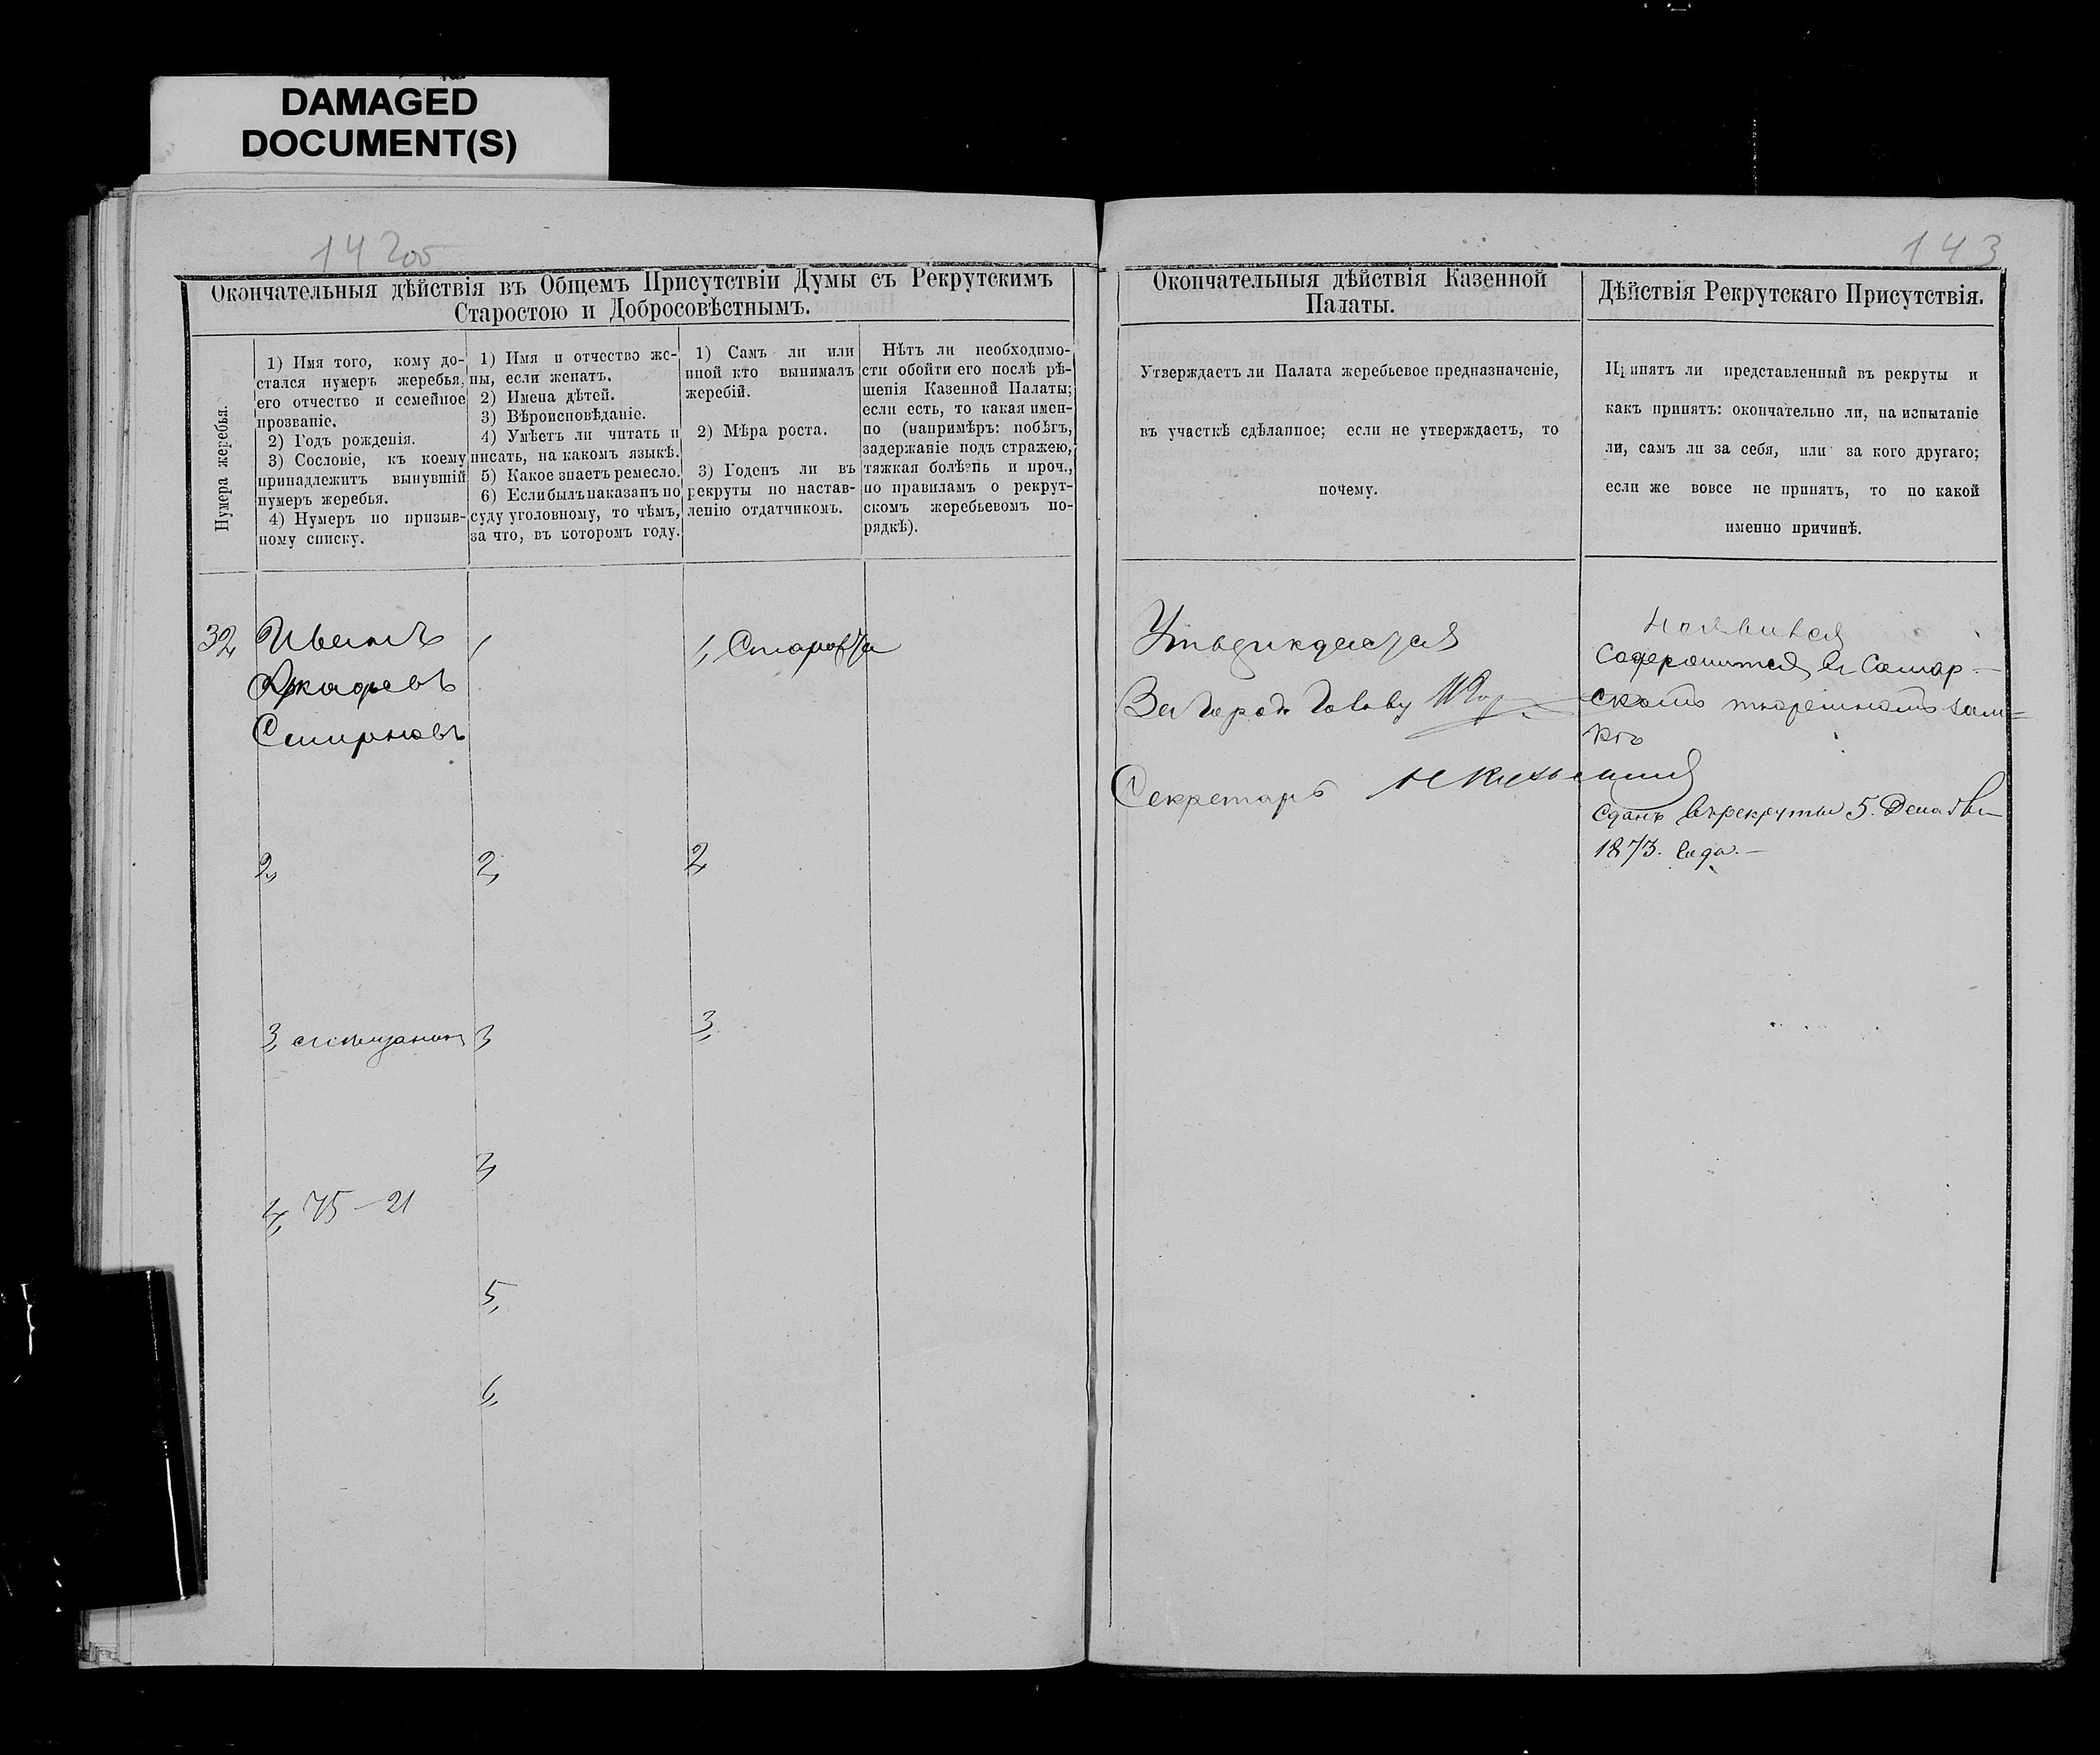 DAMAGED
DOCUMENT(S)
142об
143
Окончательныя дѣйствія въ Общемъ Присутствіи Думы съ Рекрутскимъ
Старостою и Добросовѣстнымъ.
Нумера жеребья.
1) Имя того, кому до-
стался нумеръ жеребья,
его отчество и семейное
прозваніе.
2) Годъ рожденія.
3) Сословіе, къ коему
принадлежитъ вынувшій
нумеръ жеребья.
4) Нумеръ по призыв-
ному списку.
1) Имя и отчество же-
ны, если женатъ.
2) Имена дѣтей.
3) Вѣроисповѣданіе.
4) Умѣетъ ли читать и
писать, на какомъ языкѣ.
5) Какое знаетъ ремесло.
6) Если былъ наказанъ по
суду уголовному, то чѣмъ,
за что, въ которомъ году.
1) Самъ ли или
иной кто вынималъ
жеребій.
2) Мѣра роста.
3) Годенъ ли въ
рекруты по настав-
ленію отдатчикомъ.
Нѣтъ ли необходимо-
сти обойти его послѣ рѣ-
шенія Казенной Палаты;
если есть, то какая имен-
но (напримѣръ: побѣгъ,
задержаніе подъ стражею,
тяжкая болѣзнь и проч.,
по правиламъ о рекрут-
скомъ жеребьевомъ по-
рядкѣ).
32,
Иванъ
Аркадьевъ
Смирновъ
2,
3, мѣщанинъ
4, 75-21
1,
2,
3,
4,
5,
6,
1, Староста
2,
3,
Окончательныя дѣйствія Казенной
Палаты.
Утверждаетъ ли Палата жеребьевое предназначеніе,
въ участкѣ сдѣланное; если не утверждаетъ, то
почему.
Утверждается
За Город. Голову
Секретарь
Дѣйствія Рекрутскаго Присутствія.
Принятъ ли представленный въ рекруты и
какъ принятъ: окончательно ли, на испытаніе
ли, самъ ли за себя, или за кого другаго;
если же вовсе не принятъ, то по какой
именно причинѣ.
Неявился
Содержится въ Самар-
скомъ тюремномъ зам=
кѣ
Сданъ въ рекруты 5. Декабря
1873. года.-